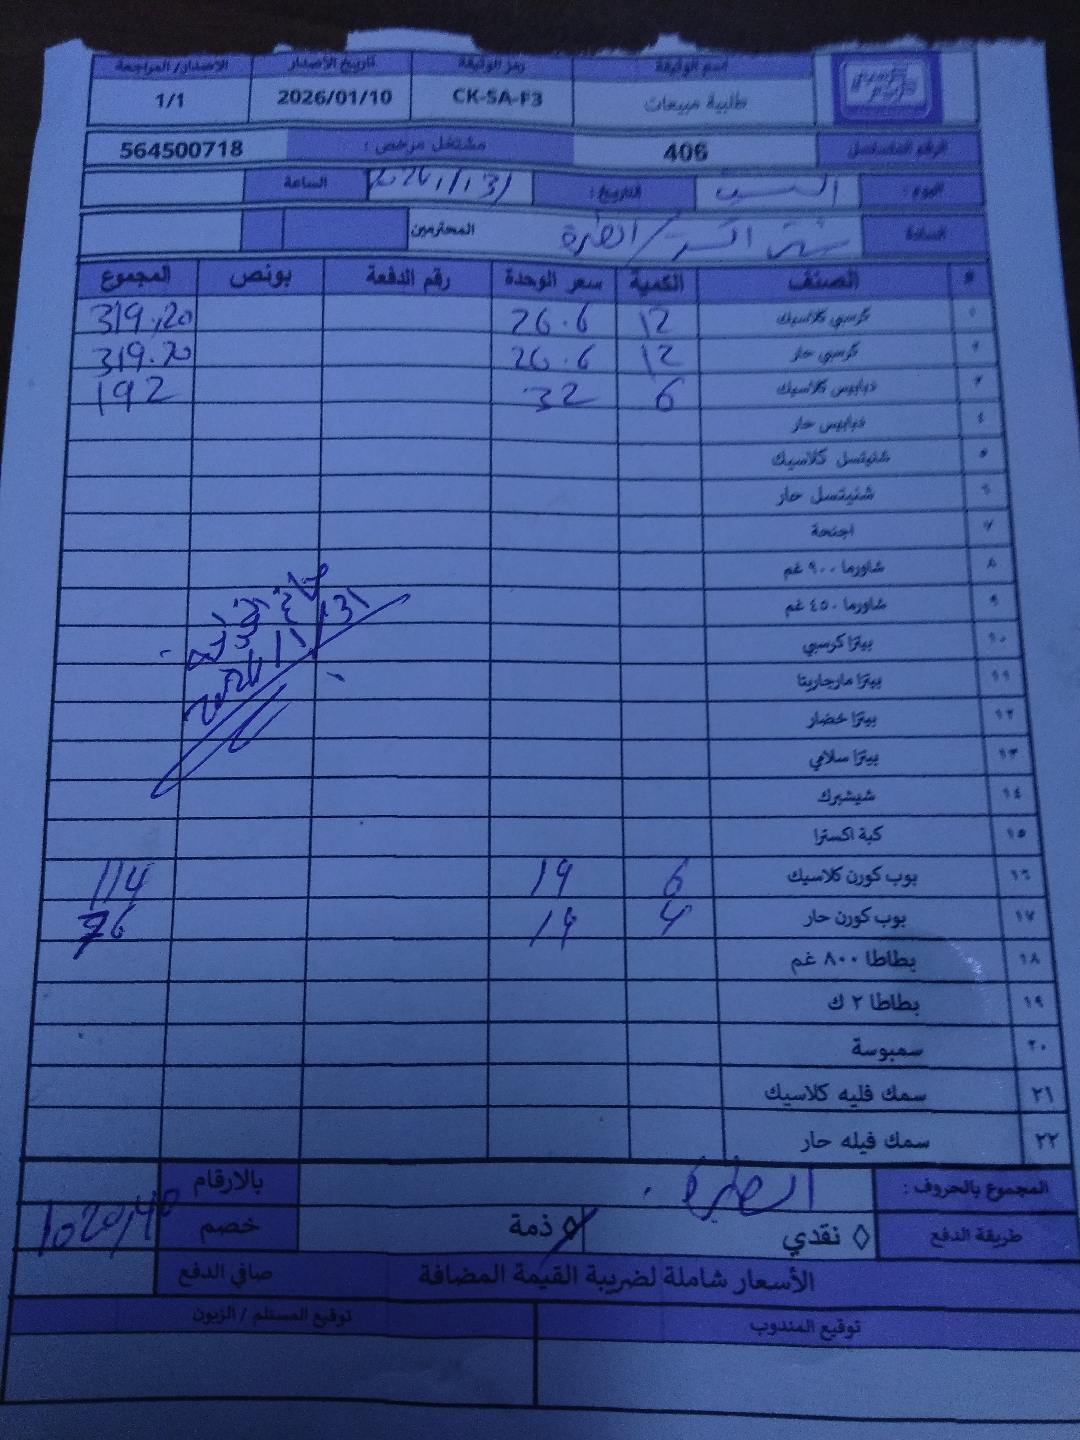 اسم الوثيقة رمز الوثيقة تاريخ الاصدار الاصدار/المراجعة
طلبية مبيعات CK-SA-F3 2026/01/10 1/1
الرقم المتسلسل 406 مشتغل مرخص : 564500718
اليوم : السبت التاريخ : 2026/1/31 الساعة
السادة المحترمين
# الصنف الكمية سعر الوحدة رقم الدفعة بونص المجموع
١ كرسبي كلاسيك 12 26.6 319,20
٢ كرسبي حار 12 26.6 319.20
٣ دبابيس كلاسيك 6 32 192
٤ دبابيس حار
٥ شنيتسل كلاسيك
٦ شنيتسل حار
٧ اجنحة
٨ شاورما ٩٠٠ غم
٩ شاورما ٤٥٠ غم
١٠ بيتزا كرسبي
١١ بيتزا مارجاريتا
١٢ بيتزا خضار
١٣ بيتزا سلامي
١٤ شيشبرك
١٥ كبة اكسترا
١٦ بوب كورن كلاسيك 6 19 114
١٧ بوب كورن حار 4 19 76
١٨ بطاطا ٨٠٠ غم
١٩ بطاطا ٢ ك
٢٠ سمبوسة
٢١ سمك فليه كلاسيك
٢٢ سمك فيله حار
2026/1/31
المجموع بالحروف : بالارقام
طريقة الدفع ◊ نقدي ◊ ذمة خصم 1020,40
الأسعار شاملة لضريبة القيمة المضافة صافي الدفع
توقيع المندوب توقيع المستلم / الزبون